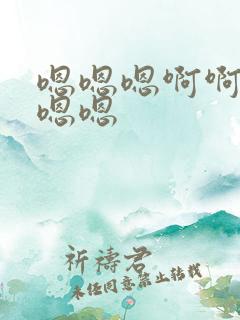 嗯嗯嗯啊啊
嗯嗯
祈祷君
未经同意禁止转载